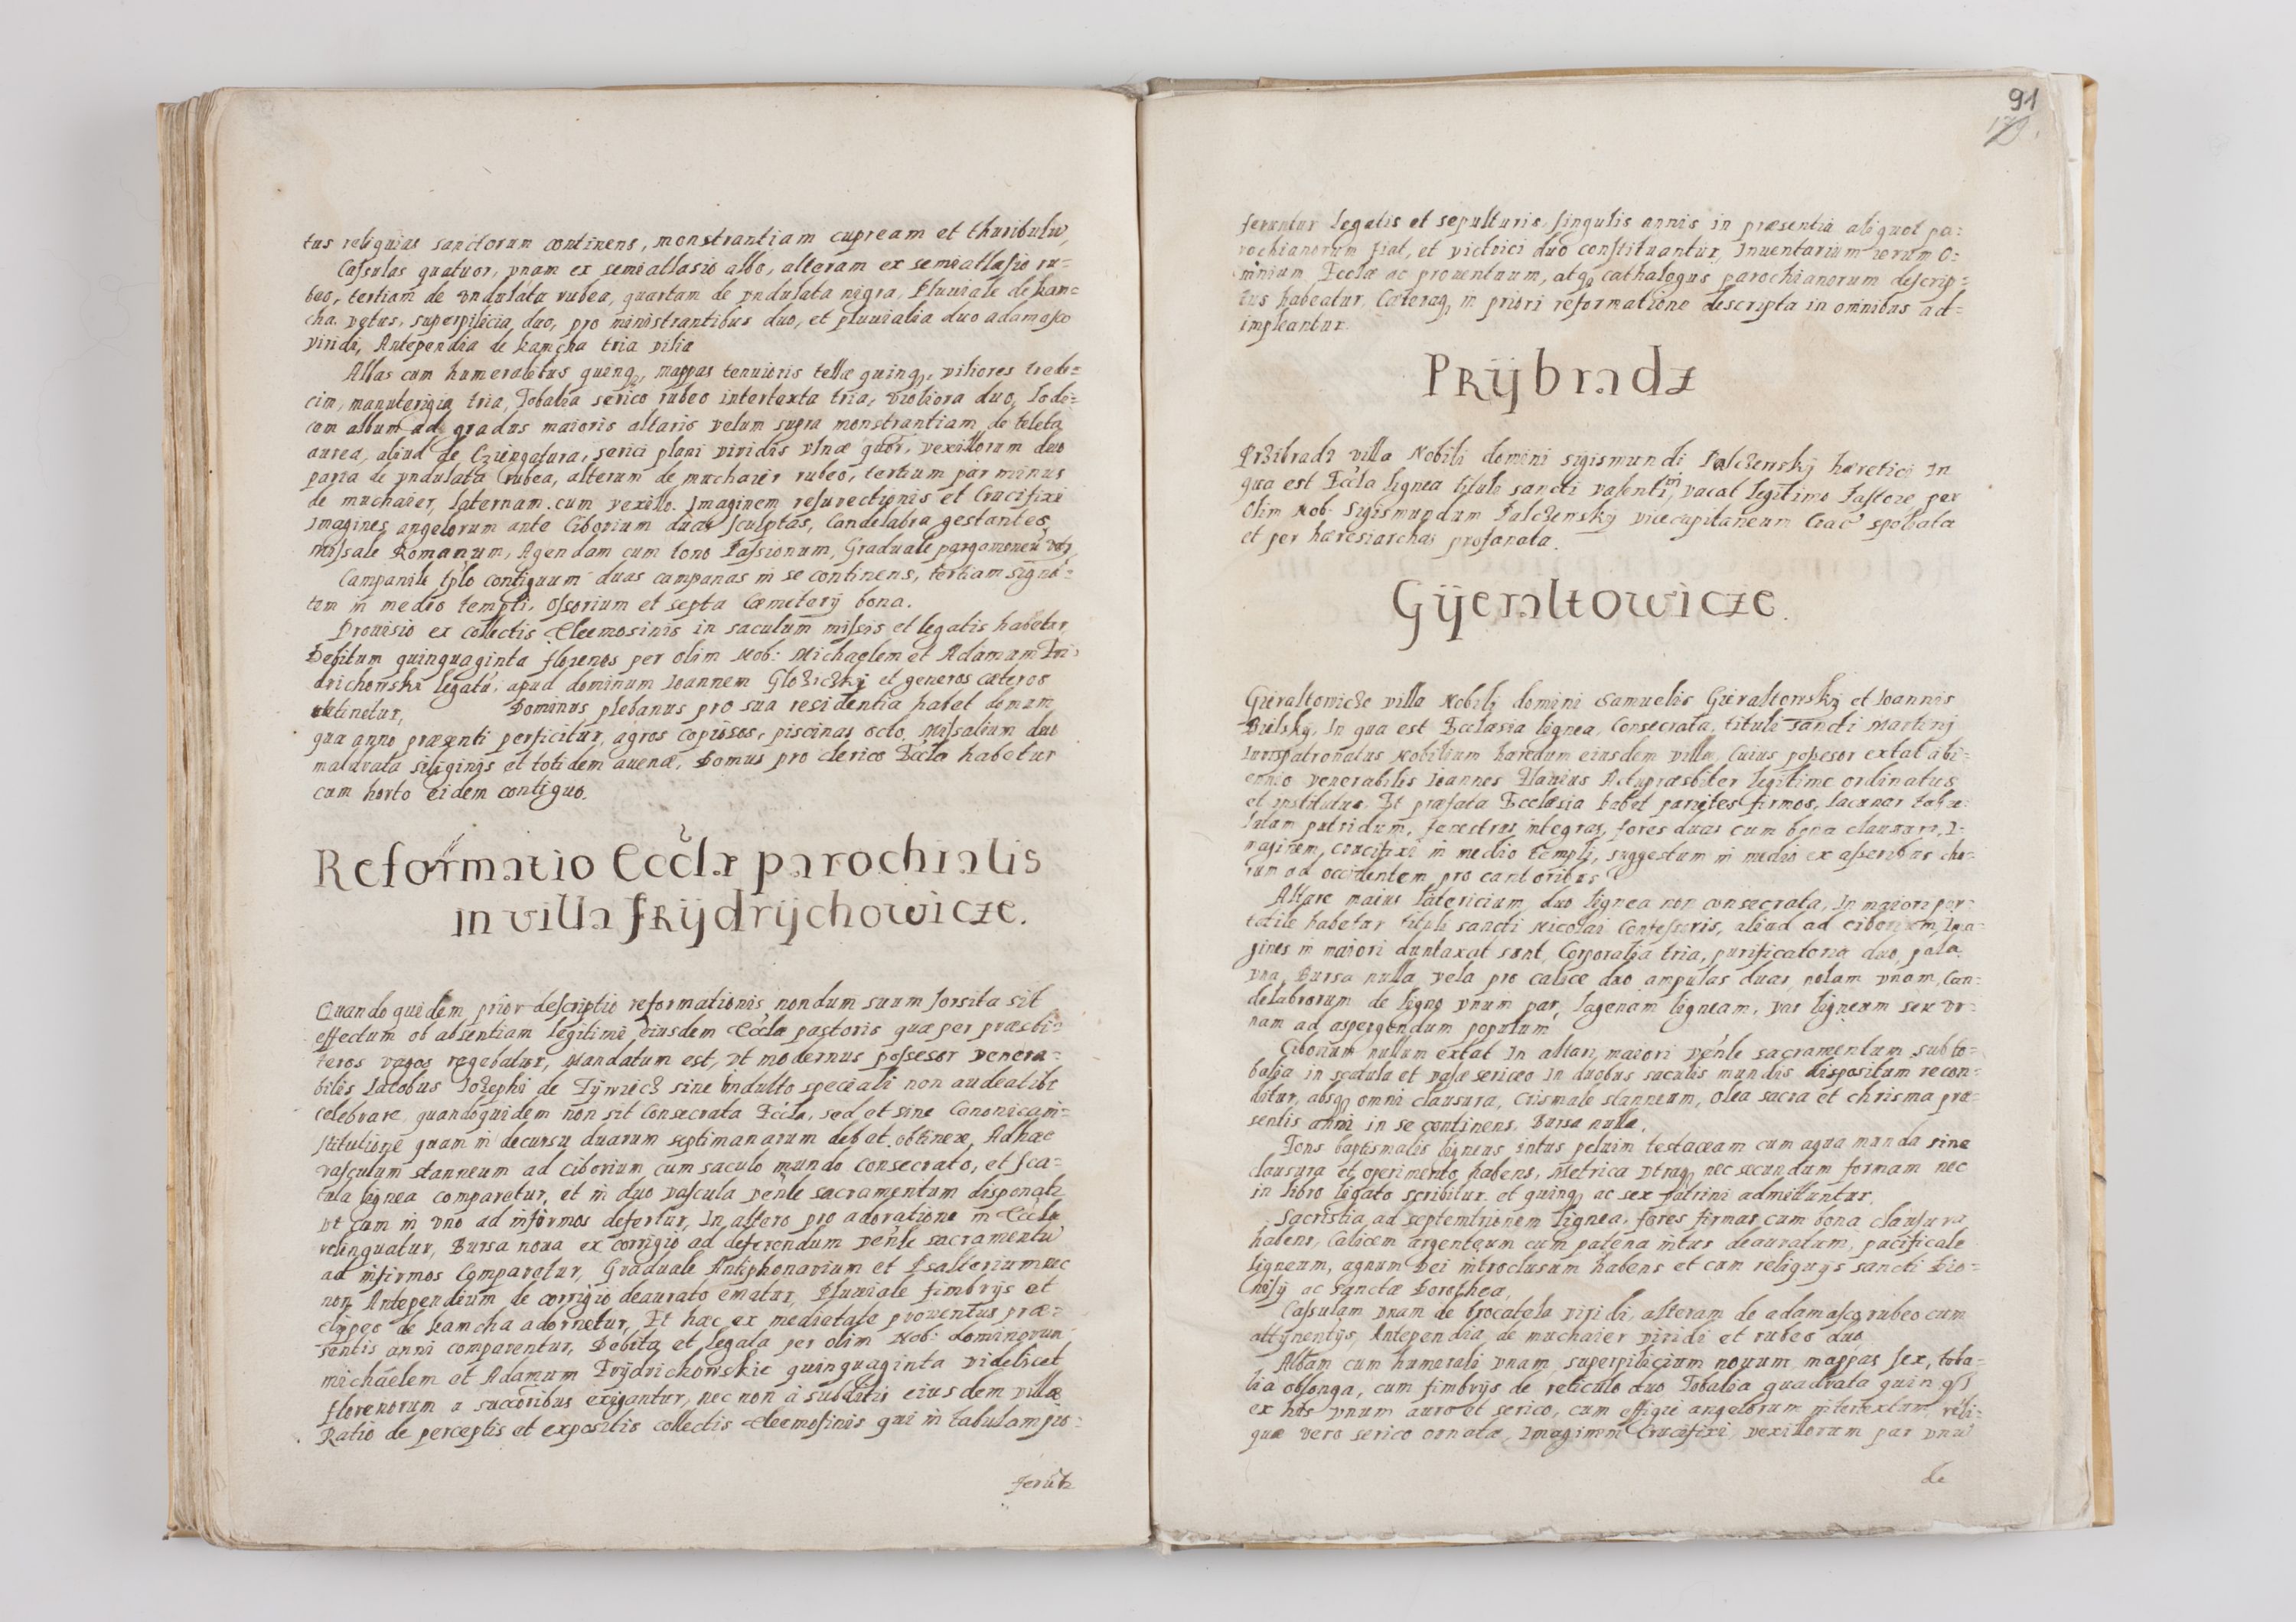 tus reliquias sanctorum continens, monstrantiam cupream et thuribulū,
Caſsulas quatuor, vnam ex semiatlasio albo, alteram ex semiatlasio ru=
beo, tertiam de vndulata rubea, quartam de vndulata nigra, Pluuiale de kam=
cha vetus, superpilicia duo, pro ministrantibus duo, et pluuialia duo adamasco
viridi, Antependia de kamcha tria vilia
Albas cum humeralibus quinq, mappas tenuioris tellæ quinq, viliores trede=
cim, manutergia tria, Tobalia serico rubeo intertexta tria, viliora duo, Lode=
cem album ad gradus maioris altaris velum supra monstrantiam de teleta
aurea, aliud de Cziengatura, serici plani viridis vlnæ quōr, vexillorum duo
paria de vndulata rubea, alterum de muchaier rubeo, tertium par minus
de muchaier, laternam cum vexillo. Imaginem resurectionis et Crucifixi
Imagines angelorum ante Ciborium duas sculptas, Candelabra gestantes,
Miſsale Romanum, Agendam cum tono Paſsionum, Graduale pargamoneū
Campanile tplo contiguum duas campanas in se continens, tertiam signa=
tam in medio templi, Oſsorium et septa Cæmeterij bona.
Prouisio ex collectis Eleemosinis in saculum miſsis et legatis habetur
Debitum quinquaginta florenos per olim Nob: Michaelem et Adamum Fri=
drichowski legatū, apud dominum Ioannem Glozicky et generos cæteros
detinetur, Dominus plebanus pro sua residentia habet domum,
qua anno præsenti perficitur, agros copiosos, piscinas octo, Miſsalium duo
maldrata siliginis et totidem auenæ, Domus pro clerico Eccla habetur
cum horto eidem contiguo.
Reformatio Ecclæ parochialis
in villa Frÿdrÿchowicze.
Quandoquidem prior descriptio reformationis nondum suum sorsita sit
effectum ob absentiam legitimi eiusdem Ecclæ pastoris quæ per præsbi=
teros vagos regebatur, Mandatum est, vt modernus poſsesor venera=
bilis Iacobus Iozephi de Tÿmiec sine indulto speciali non audeat ibi
celebrare, quandoquidem non sit Consecrata Eccla, sed et sine Canonica in=
stitutione quam in decursu duarum septimanarum debet obtinere, Adhæc
vasculum stanneum ad ciborium cum saculo mundo consecrato, et sca=
tula lignea comparetur, et in duo vascula venle sacramentum disponatur
vt cum in vno ad infirmos defertur, In altero pro adoratione in Eccla
relinquatur, Bursa noua ex corrigio ad deferendum venle sacramentū
ad infirmos Comparetur, Graduale Antiphonarium et Psalterium nec
non Antependium de corrigio deaurato ematur, Pluuiale fimbrijs et
clÿpeo de kamcha adornetur, Et hæc ex medietate prouentus præ=
sentis anni comparentur, Debita et legata per olim Nob: dominorum
michaelem et Adamum Frÿdrichowskie quinquaginta videlicet
florenorum a succoribus exigantur, nec non à subditis eiusdem villæ
Ratio de perceptis et expositis collectis Eleemosinis qui in tabulam pro=
ferūt
91
179.
feruntur legatis et sepulturis, singulis annis in præsentia aliquot pa=
rochianorum fiat, et victrici duo constituantur, Inuentarium rerum O=
mnium Ecclæ ac prouentuum, atq cathalogus parochianorum descrip=
tus habeatur, Cæteraq in priori reformatione descripta in omnibus ad=
impleantur.
PRÿbradz
Przibradz villa Nobili domini sigismundi Palczensky hæretici In
qua est Eccla lignea tituli sancti valentini, vacat legitimo Pastore, per
Olim Nob: Sigismundum Palczewsky vicecapitaneum Crac spoliata
et per hæresiarchas profanata.
Gÿeraltowicze.
Gieraltowicze villa Nobilj domini Samuelis Gieraltowsky et Ioannis
Bielsky, In qua est Ecclæsia lignea, Consecrata, tituli sancti Martinj
Iurispatronatus Nobilium hæredum eiusdem villæ, Cuius poſsesor extat à bi=
ennio venerabilis Ioannes Flauius Actupræsbiter legitime ordinatus
et institutus. Et præfata Ecclæsia habet parietes firmos, lacunar tabu=
latum putridum, fenestras integras, fores duas cum bona clausura, I=
maginem crucifixi in medio templi, suggestum in medio ex aſseribus cho=
rum ad occidentem pro cantoribus
Altare maius latericium, duo lignea non consecrata, In maiori por=
tatile habetur tituli sancti Nicolai Confeſsoris, aliud ad ciborium, Ima=
gines in maiori duntaxat sunt, Corporalia tria, purificatoria duo, pala
vna, Bursa nulla, vela pro calice duo ampulas duas, nolam vnam, Can=
delabrorum de ligno vnum par, lagenam ligneam, vas ligneum seu vr=
nam ad aspergendum populum
Ciborium nullum extat In altari maiori venle sacramentum sub to=
balia in scatula et vase sericeo In duobus saculis mundis dispositum recon=
ditur, absq omni clausura, Crismale stanneum, olea sacra et chrisma præ=
sentis anni in se continens, Bursa nulla.
Fons baptismalis ligneus intus peluim testaceam cum aqua munda sine
clausura et operimento habens, Metrica vtraq nec secundum formam nec
in libro ligato scribitur, et quinq ac sex patrini admittuntur.
Sacristia ad septemtrionem lignea, fores firmas cum bona clausura
habens, Calicem argenteum cum patena intus deauratum, pacificale
ligneum, agnum Dei introclusum habens et cum reliquijs sancti Dio=
nisÿ ac sanctæ Dorotheæ,
Caſsulam vnam de brocatela viridi, alteram de adamasco rubeo cum
attynentijs, Antependia de muchaier viridi et rubeo duo,
Albam cum humerali vnam, superpilicium nouum, mappas sex, toba=
lia oblonga, cum fimbrijs de reticulo duo Tobalia quadrata quinq
ex his vnum auro et serico, cum effigie angelorum intertextum, reli=
quæ vero serico ornatæ, Imaginem Crucifixi vexillorum par vnū
de